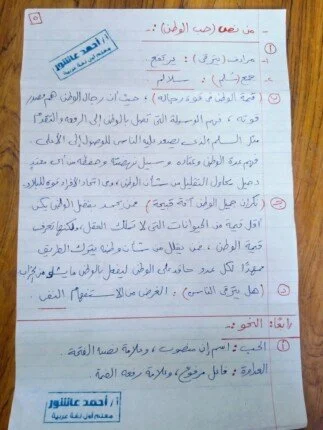 ٥
- من نص (حب الوطن) :-
أ. أحمد عاشور
معلم أول لغة عربية
أ
- مرادف (يترقى) : يرتفع
- جمع (سُلم) : سلالم
ب قيمة الوطن في قوة رجاله ) ، حيث أن رجال الوطن هم مصدر
قوته ، فهم الوسيلة التي تصل بالوطن إلى الرفعة والتقدم
مثل السلم الذي يصعد عليه الناس للوصول إلى الأعلى
فهم عدة الوطن وعتاده وسبيل نهضته وحمايته من أي معتدٍ
دخيل يحاول التقليل من شأن الوطن، وفي اتحاد الأفراد قوة للبلاد
جـ نكران جميل الوطن آفة قبيحة ) فمن يجحد بفضل الوطن يكن
أقل قيمة من الحيوانات التي لا تملك العقل، ولكنها تعرف
قيمة الوطن ، فمن يقلل من شأن وطنه يترك الطريق
ممهدًا لكل عدو حاقد على الوطن ليفعل بالوطن ما يشاء من خراب
د (هل يترقى الناس) : الغرض من الاستفهام النفي
رابعًا: النحو :-
أ
الحب : اسم إن منصوب ، وعلامة نصبه الفتحة
العبارة : فاعل مرفوع ، وعلامة رفعه الضمة
أ. أحمد عاشور
معلم أول لغة عربية